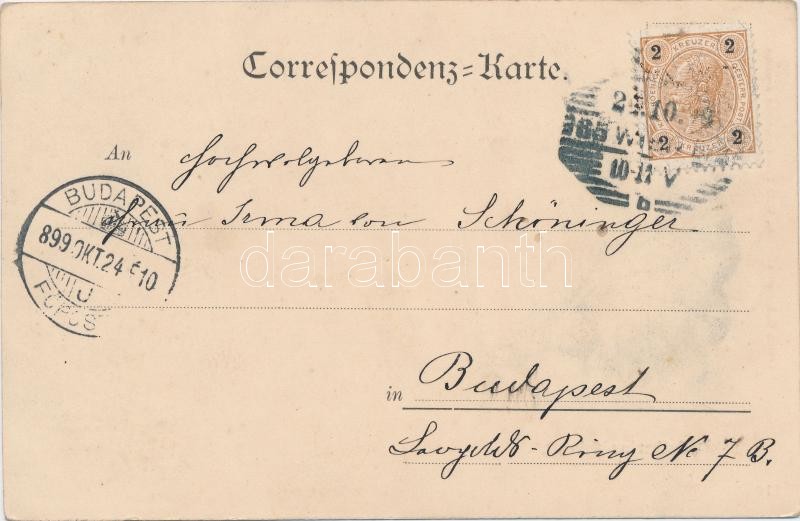 Correspondenz=Karte.
2 KREUZER 2
2 KREUZER 2
10.
65 WIEN
10-11 V
6
An Hochwolgeboren
Irma von Schöninger
BUDAPEST
899 OKT. 24
FŐPOS
darabanth
in Budapest
Ring No 7 B.